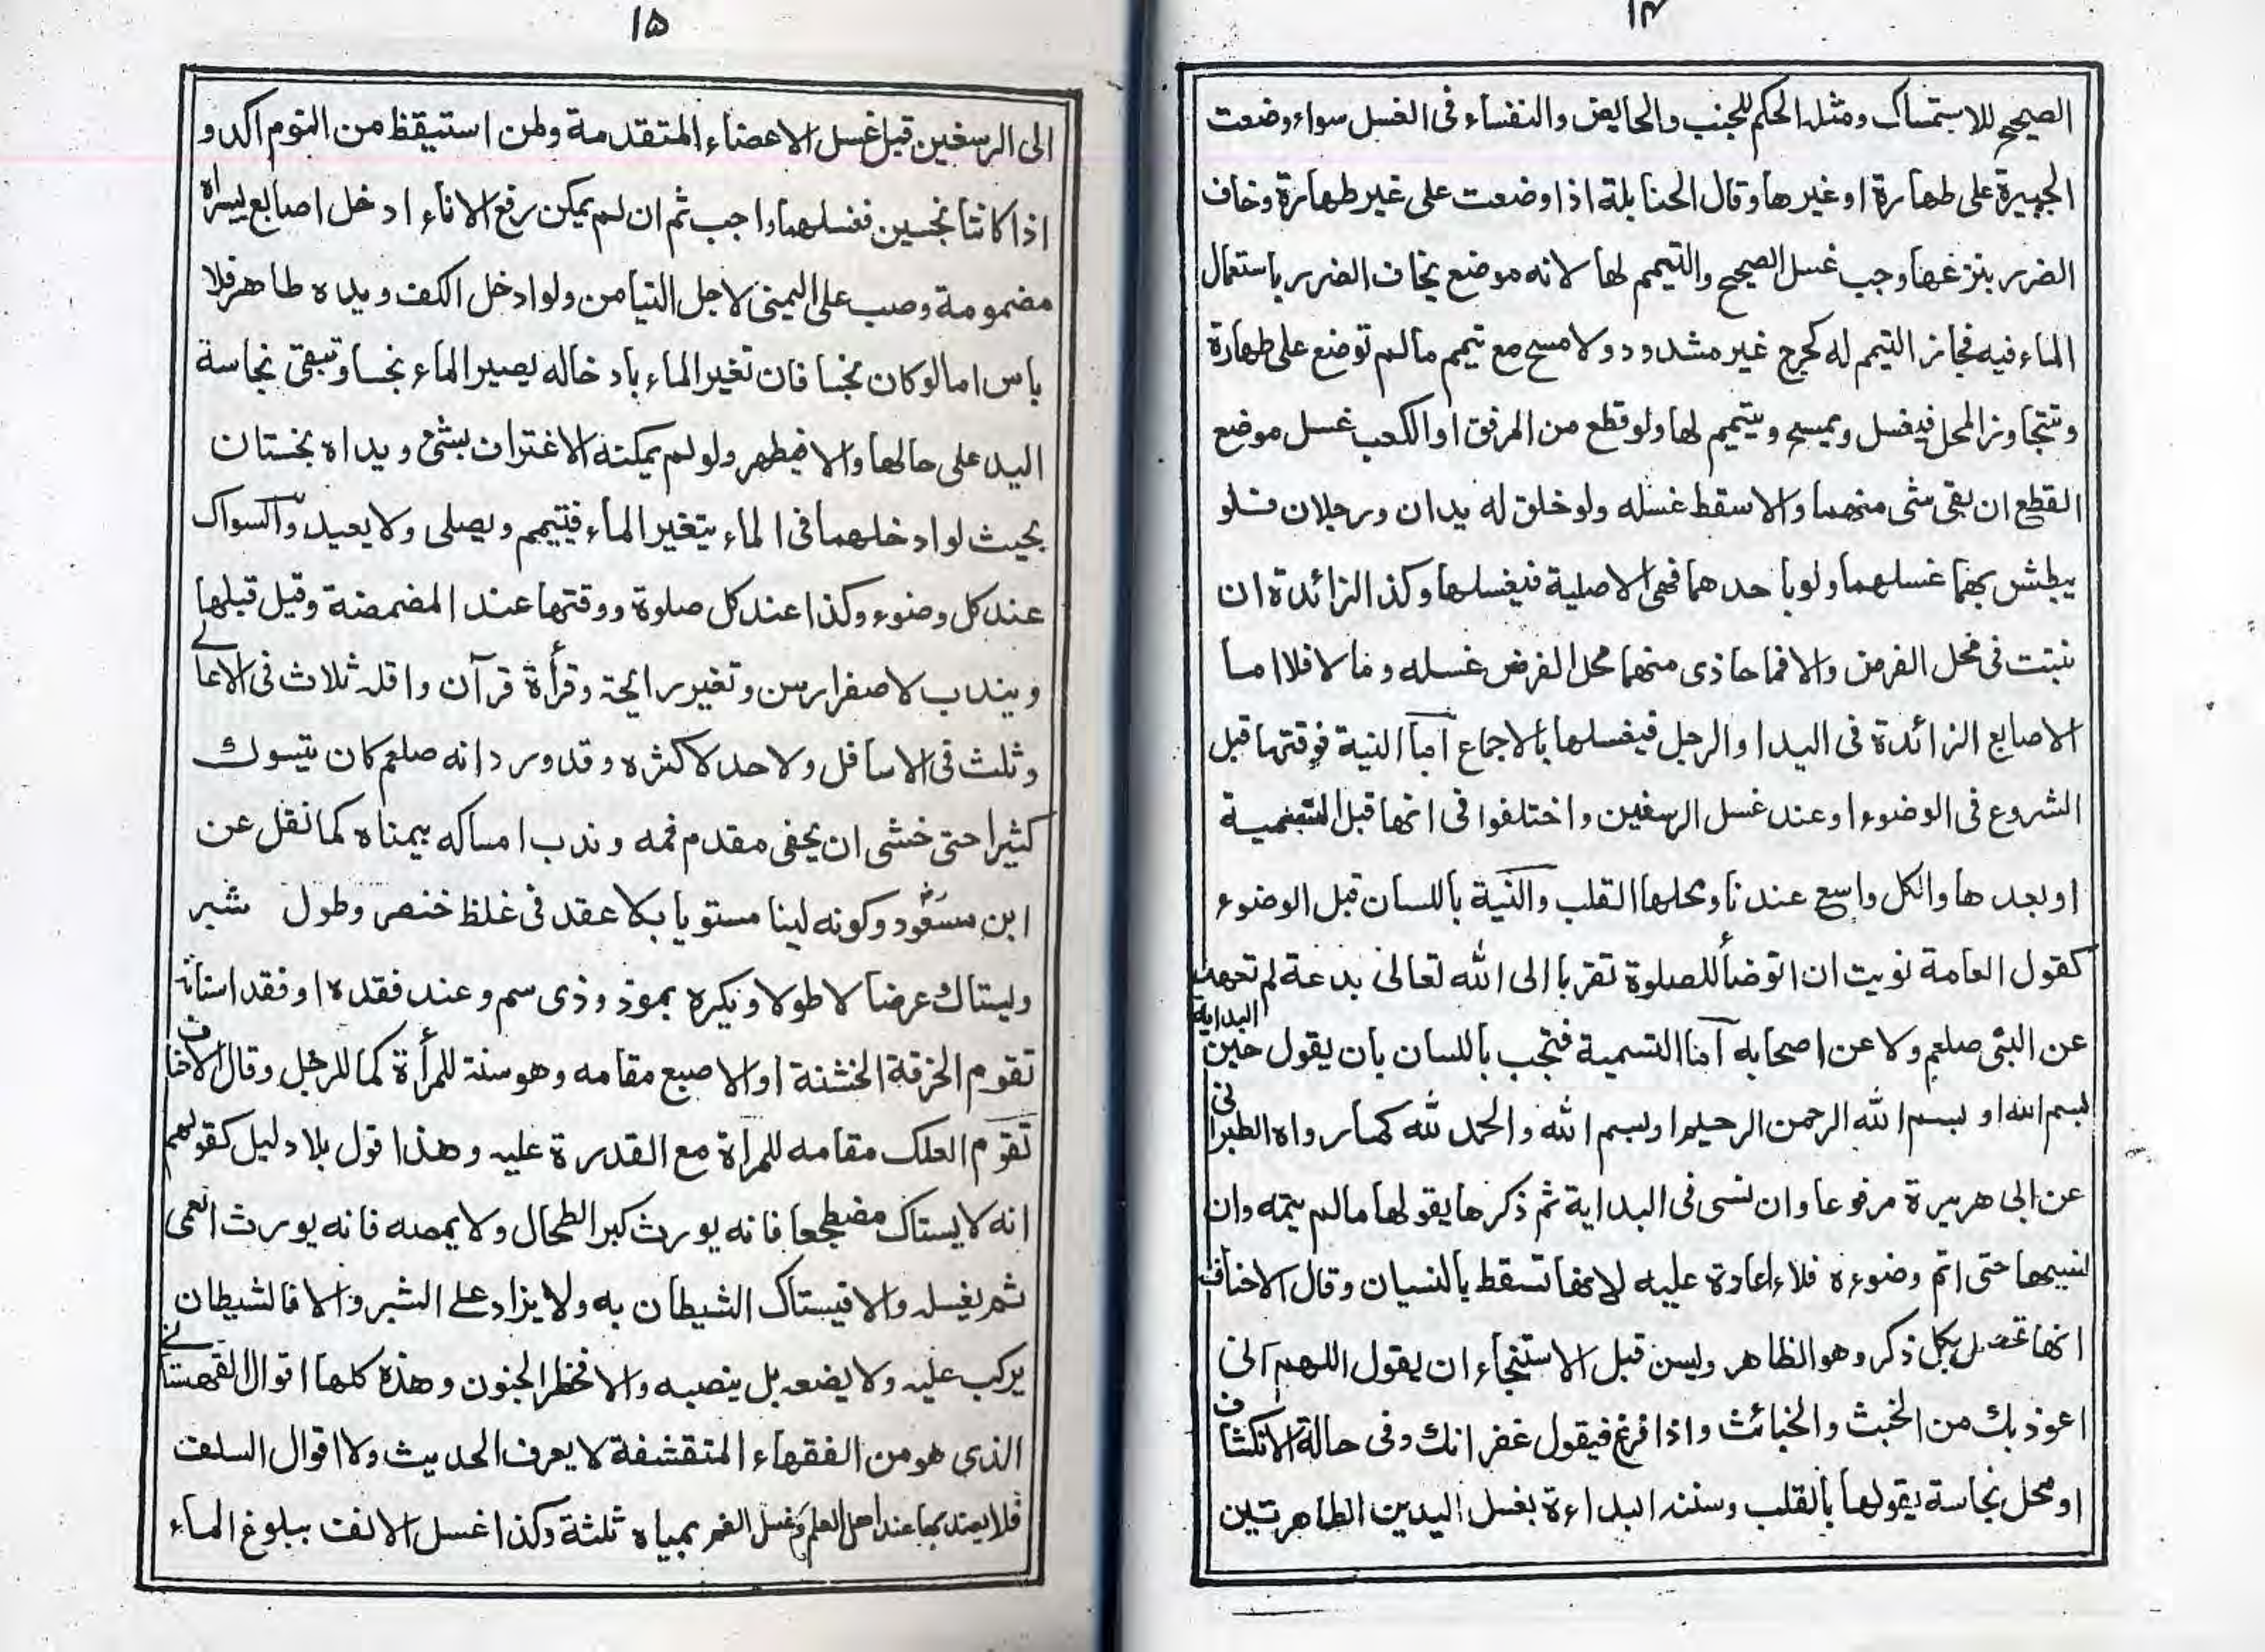 ١٤
الصحيح للاستمساك ومثله الحكم للجنب والحايض والنفساء فى الغسل سواء وضعت
الجبيرة على طهارة او غيرها وقال الحنابلة اذا وضعت على غير طهارة وخاف
الضرر بنزعها وجب غسل الصحيح والتيمم لها لانه موضع يخاف الضرر باستعمال
الماء فيه فجاز التيمم له كجرح غير مشدود ولا مسح مع تيمم مالم توضع على طهارة
وتتجاوز المحل فيغسل ويمسح ويتيمم لها ولو قطع من المرفق او الكعب غسل موضع
القطع ان بقى شى منهما والا سقط غسله ولو خلق له يدان ورجلان فلو
يبطش بهما غسلهما ولو باحدهما فهى الاصلية فيغسلها وكذا الزائدة ان
نبتت فى محل الفرض والا فما حاذى منهما محل الفرض غسله وما لا فلا اما
الاصابع الزائدة فى اليد او الرجل فيغسلها بالاجماع اما النية فوقتها قبل
الشروع فى الوضوء او عند غسل الرسغين واختلفوا فى انها قبل التسمية
او بعدها والكل واسع عندنا ومحلها القلب والنية باللسان قبل الوضوء
كقول العامة نويت ان اتوضأ للصلوة تقربا الى الله تعالى بدعة لم تعهد
عن النبى صلعم ولا عن اصحابه اما التسمية فتجب باللسان بان يقول حين البداية
بسم الله او بسم الله الرحمن الرحيم او بسم الله والحمد لله كما رواه الطبرانى
عن ابى هريرة مرفوعا وان نسى فى البداية ثم ذكرها يقولها مالم يتمه وان
نسيها حتى اتم وضوءه فلا اعادة عليه لانها تسقط بالنسيان وقال الاحناف
انها تحصل بكل ذكر وهو الظاهر وليس قبل الاستنجاء ان يقول اللهم انى
اعوذ بك من الخبث والخبائث واذا فرغ فيقول غفرانك وفى حالة الانكشاف
او محل نجاسة يقولها بالقلب وسننه البداءة بغسل اليدين الطاهرتين
١٥
الى الرسغين قبل غسل الاعضاء المتقدمة ولمن استيقظ من النوم اكد و
اذا كانتا نجسين فغسلهما واجب ثم ان لم يمكن رفع الاناء ادخل اصابع يسراه
مضمومة وصب على اليمنى لاجل التيامن ولو ادخل الكف ويده طاهر فلا
باس اما لو كان نجسا فان تغير الماء بادخاله يصير الماء نجسا وتبقى نجاسة
اليد على حالها والا فيطهر ولو لم يمكنه الاغتراف بشئ ويداه نجستان
بحيث لو ادخلهما فى الماء يتغير الماء فيتيمم ويصلى ولا يعيد والسواك
عند كل وضوء وكذا عند كل صلوة ووقتها عند المضمضة وقيل قبلها
ويندب لاصفرار سن وتغير رائحة وقرأة قرآن واقله ثلاث فى الاعالى
وثلث فى الاسافل ولا حد لاكثره وقد ورد انه صلعم كان يتسوك
كثيرا حتى خشى ان يحفى مقدم فمه وندب امساكه بيمناه كما نقل عن
ابن مسعود وكونه لينا مستويا بلا عقد فى غلظ خنصر وطول شبر
وليستاك عرضا لا طولا ويكره بموذ وذى سم وعند فقده او فقد اسنانه
تقوم الخرقة الخشنة او الاصبع مقامه وهو سنة للمرأة كما للرجل وقال الاحناف
تقوم العلك مقامه للمرأة مع القدرة عليه وهذا قول بلا دليل كقولهم
انه لا يستاك مضطجعا فانه يورث كبر الطحال ولا يمصه فانه يورث العمى
ثم يغسله والا فيستاك الشيطان به ولا يزاد على الشبر والا فالشيطان
يركب عليه ولا يضعه بل ينصبه والا فخطر الجنون وهذه كلها اقوال القهستانى
الذى هو من الفقهاء المتقشفة لا يعرف الحديث ولا اقوال السلف
فلا يعتد بها عند اهل العلم وغسل الفم بمياه ثلثة وكذا غسل الانف ببلوغ الماء